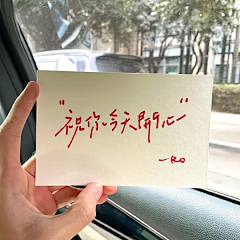 “祝你今天開心”
—RO